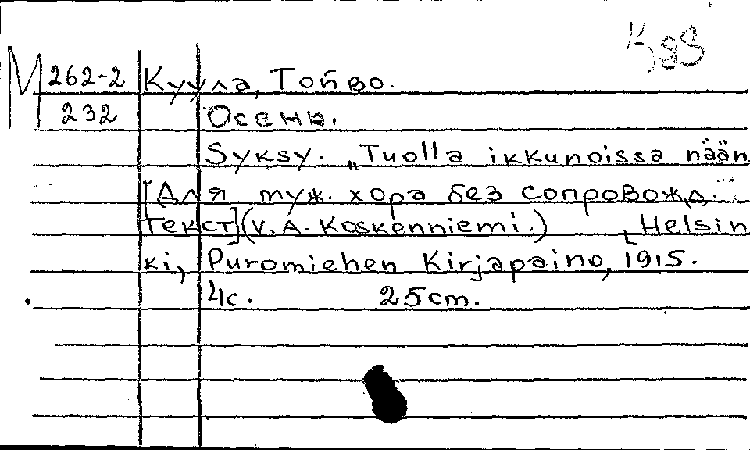 M 262-2 Куула, Тойво.
232 Осень.
Syksy. „Tuolla ikkunoissa nään
[Для муж. хора без сопровожд...
Текст] (V. A. Koskenniemi.) [Helsin
ki, Puromiehen Kirjapaino, 1915.
4с. 25cm.